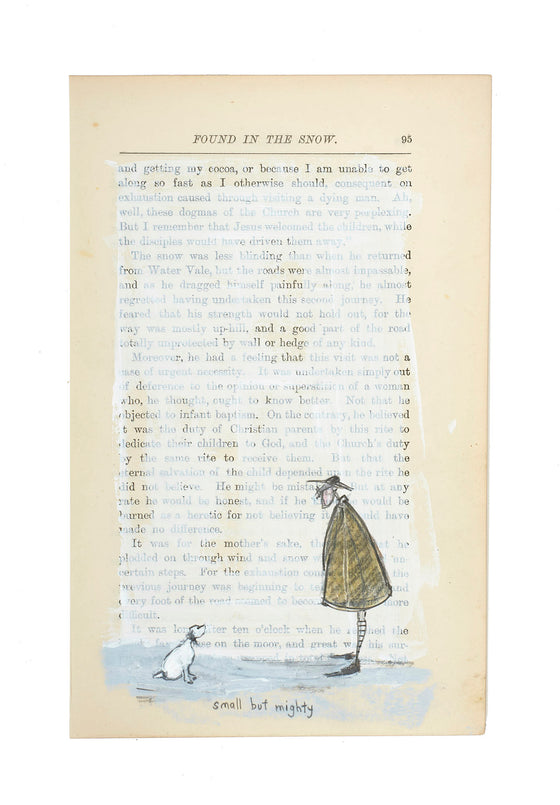 FOUND IN THE SNOW. 95
and getting my cocoa, or because I am unable to get
along so fast as I otherwise should, consequent on
exhaustion caused through visiting a dying man. Ah,
well, these dogmas of the Church are very perplexing.
But I remember that Jesus welcomed the children, while
the disciples would have driven them away."
The snow was less blinding than when he returned
from Water Vale, but the roads were almost impassable,
and as he dragged himself painfully along, he almost
regretted having undertaken this second journey. He
feared that his strength would not hold out, for the
way was mostly up-hill, and a good part of the road
totally unprotected by wall or hedge of any kind.
Moreover, he had a feeling that this visit was not a
case of urgent necessity. It was undertaken simply out
of deference to the opinion or superstition of a woman
who, he thought, ought to know better. Not that he
objected to infant baptism. On the contrary, he believed
it was the duty of Christian parents by this rite to
dedicate their children to God, and the Church's duty
by the same rite to receive them. But that the
eternal salvation of the child depended upon the rite he
did not believe. He might be mista But at any
rate he would be honest, and if he would be
burned as a heretic for not believing it would have
made no difference.
It was for the mother's sake, he
plodded on through wind and snow un-
certain steps. For the exhaustion the
previous journey was beginning to and
every foot of the road seemed to more
difficult.
It was long after ten o'clock when he the
on the moor, and great was his sur-
small but mighty